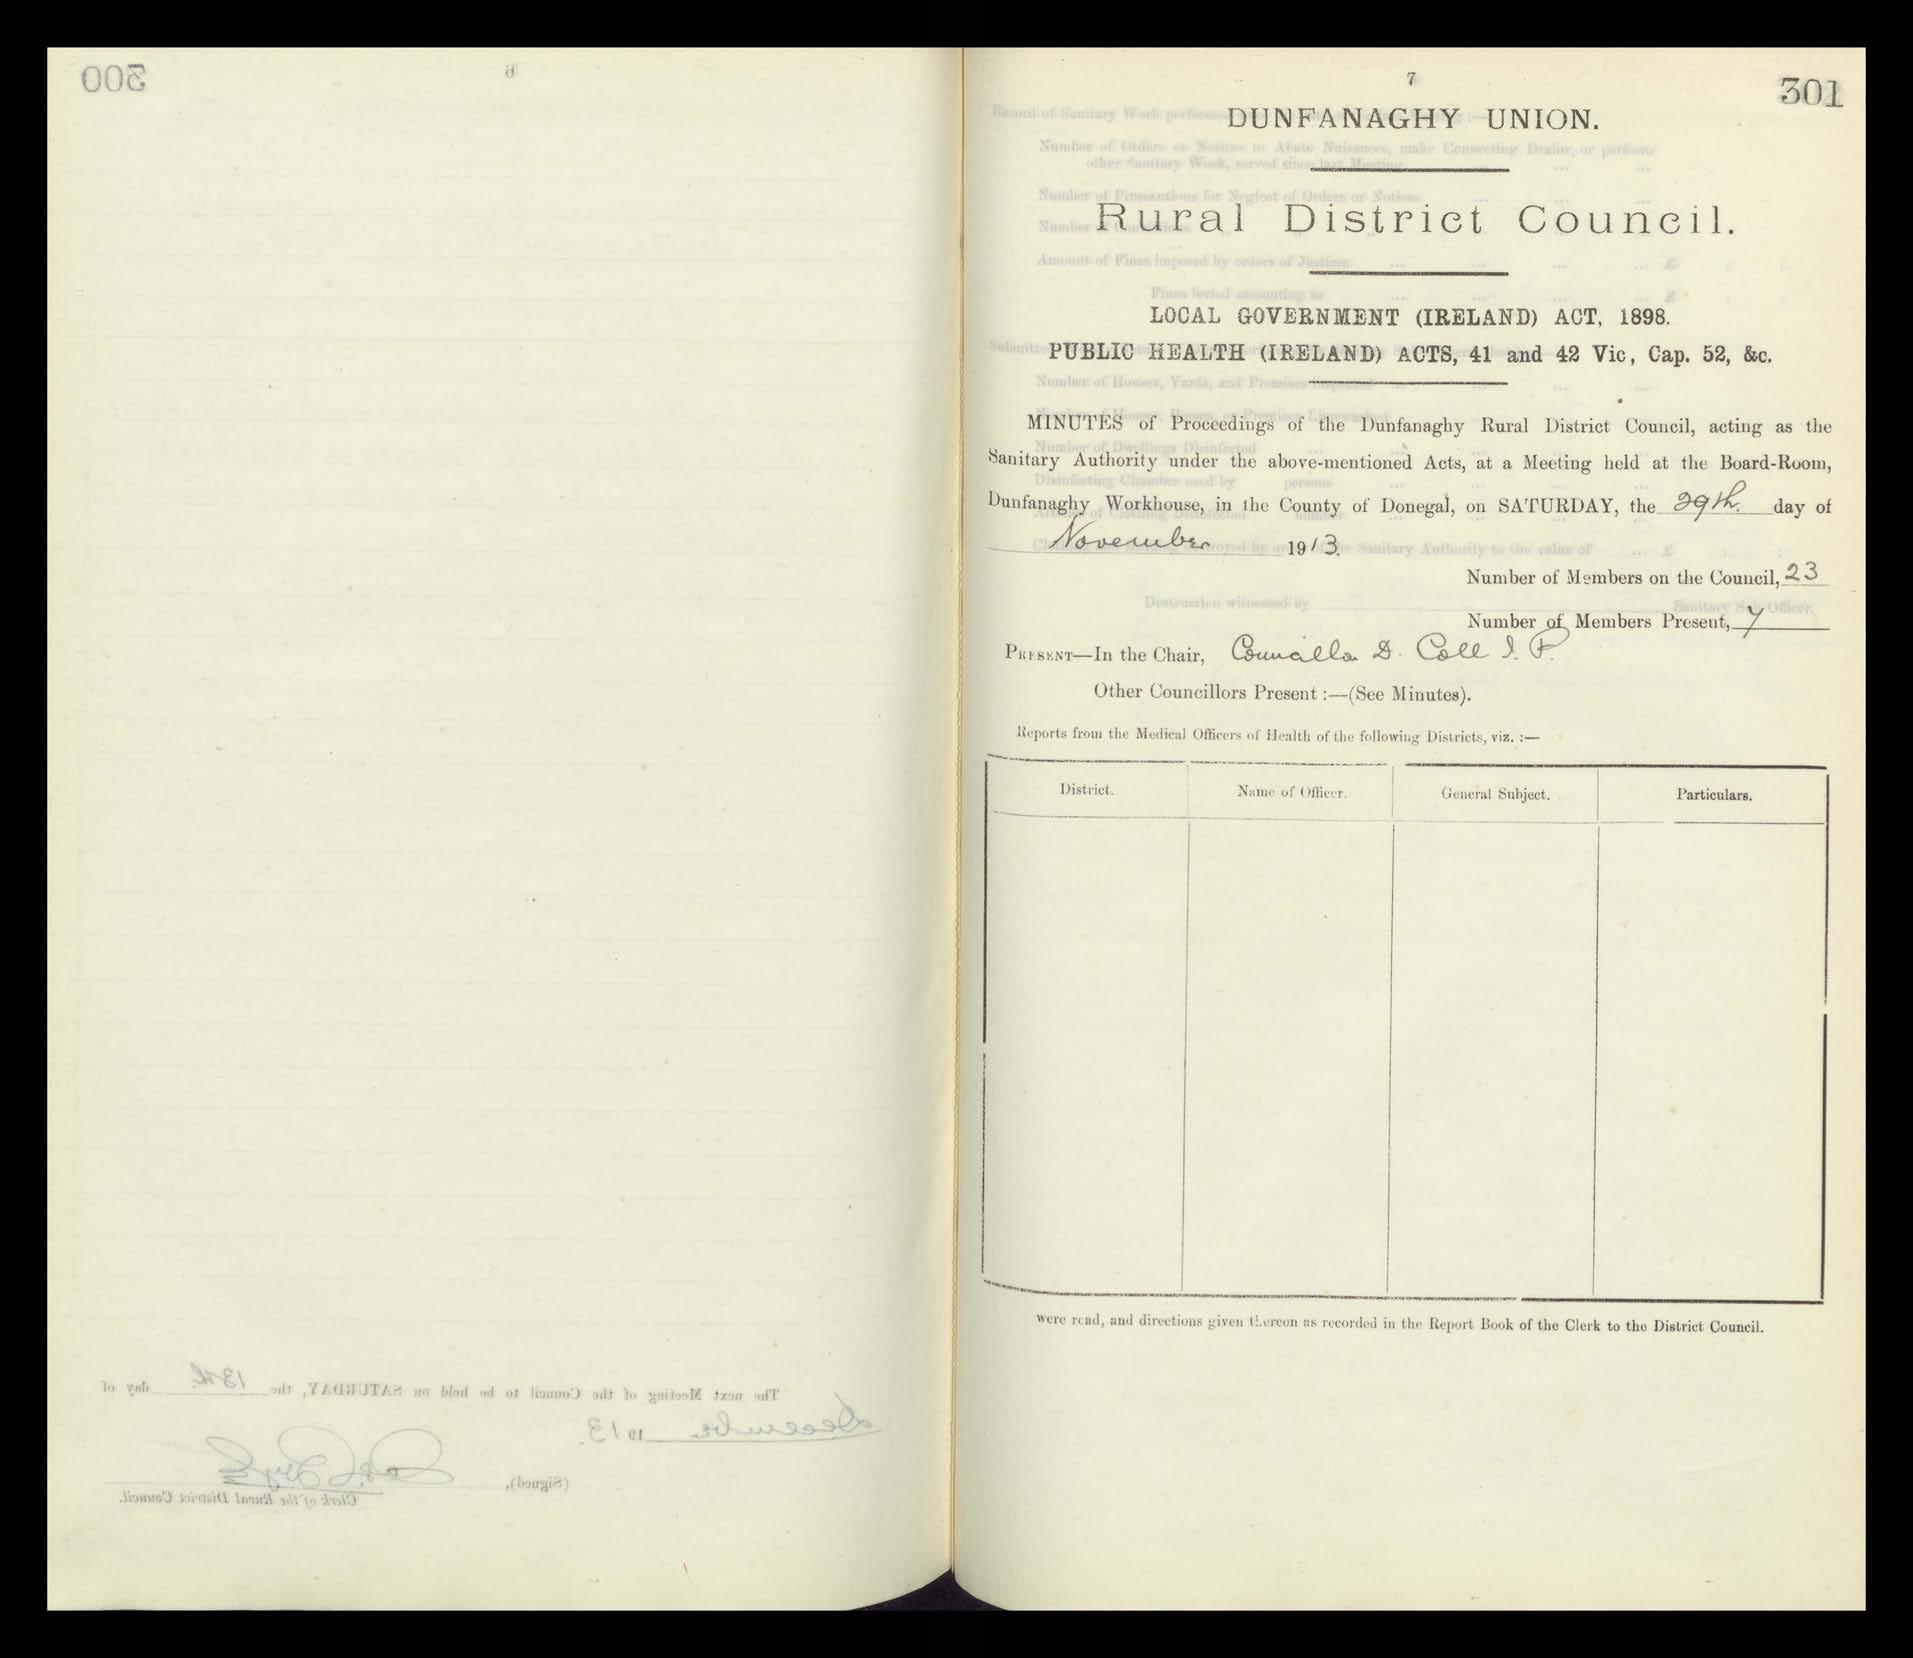 7
301
DUNFANAGHY UNION.
Rural District Council.
LOCAL GOVERNMENT (IRELAND) ACT, 1898.
PUBLIC HEALTH (IRELAND) ACTS, 41 and 42 Vic, Cap. 52, &c.
MINUTES of Proceedings of the Dunfanaghy Rural District Council, acting as the
Sanitary Authority under the above-mentioned Acts, at a Meeting held at the Board-Room,
Dunfanaghy Workhouse, in the County of Donegal, on SATURDAY, the 29th. day of
November 1913.
Number of Members on the Council, 23
Number of Members Present, 7
PRESENT—In the Chair, Councillor D. Coll J. P.
Other Councillors Present :—(See Minutes).
Reports from the Medical Officers of Health of the following Districts, viz. :—
District. Name of Officer. General Subject. Particulars.
were read, and directions given thereon as recorded in the Report Book of the Clerk to the District Council.
300
6
The next Meeting of the Council to be held on SATURDAY, the 13th. day of
December 1913.
(Signed),
Clerk of the Rural District Council.